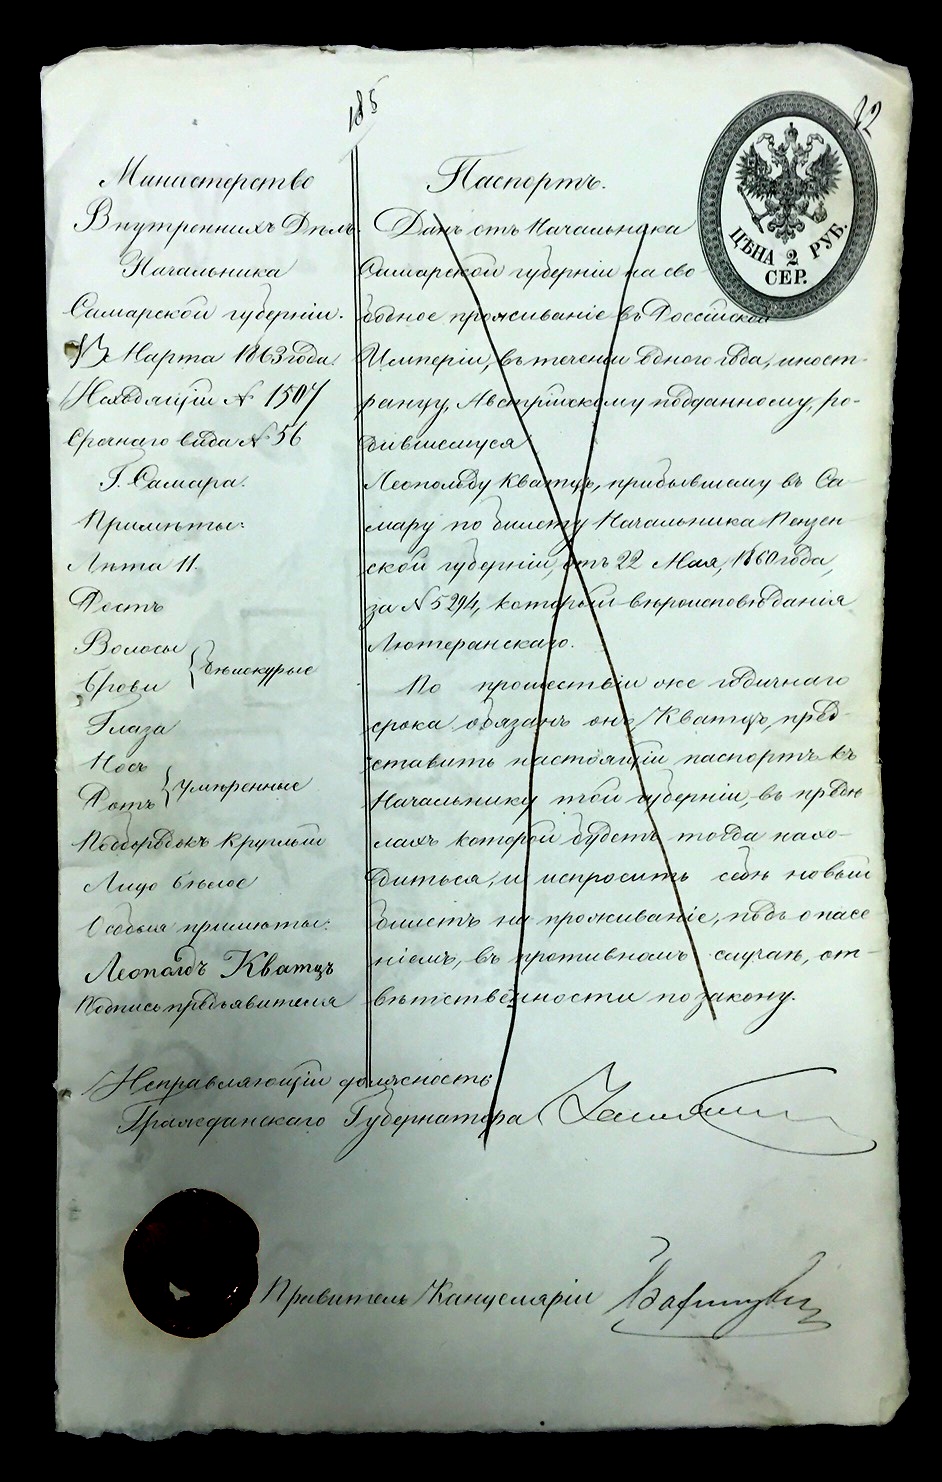 185
82
Министерство
Внутреннихъ Дѣлъ.
Начальника
Самарской губерніи.
Марта 1863 года.
№ 1507
Срочнаго вида № 56
Г. Самара.
Примѣты:
Лѣта 11.
Ростъ
Волосы
Брови
бѣлокурые
Глаза
Носъ
Ротъ
умѣренные
Подбородокъ круглый
Лицо бѣлое
Особыя примѣты:
Леопольдъ Кватцъ
Подпись предъявителя
Паспортъ.
Данъ отъ Начальника
Самарской губерніи на сво-
бодное проживаніе въ Россійской
Имперіи, въ теченіи одного года, иност-
ранцу, Австрійскому подданному, ро-
дившемуся
Леопольду Кватцъ, прибывшему въ Са-
мару по билету Начальника Пензен-
ской губерніи, отъ 22 Мая, 1860 года,
за № 5294, который вѣроисповѣданія
Лютеранскаго.
По прошествіи же годичнаго
срока обязанъ онъ, Кватцъ, пред-
ставить настоящій паспортъ къ
Начальнику той губерніи, въ предѣ-
лахъ которой будетъ тогда нахо-
диться, и испросить себѣ новый
билетъ на проживаніе, подъ опасе
ніемъ, въ противномъ случаѣ, от-
вѣтственности по закону.
ЦѢНА 2 РУБ.
СЕР.
Исправляющій должность
Гражданскаго Губернатора
Правитель Канцеляріи